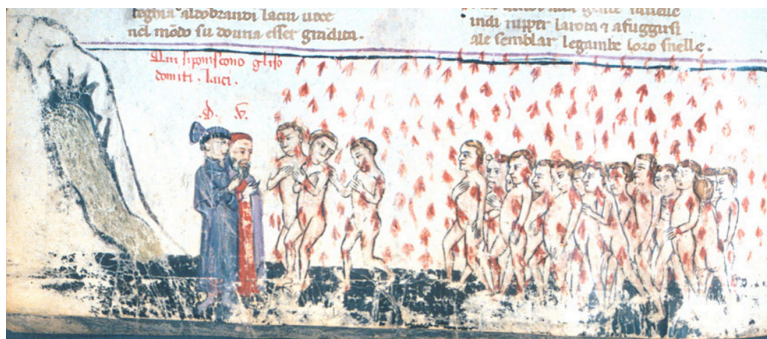 teghia aldobrandi lacui uoce
nel modo su douria esser gradita.
ala gente fauelle
indi rupper larota ⁊ afuggirsi
ale semblar legambe loro snelle.
Qui siponiscono gliso
domiti. luci.
.d. V.